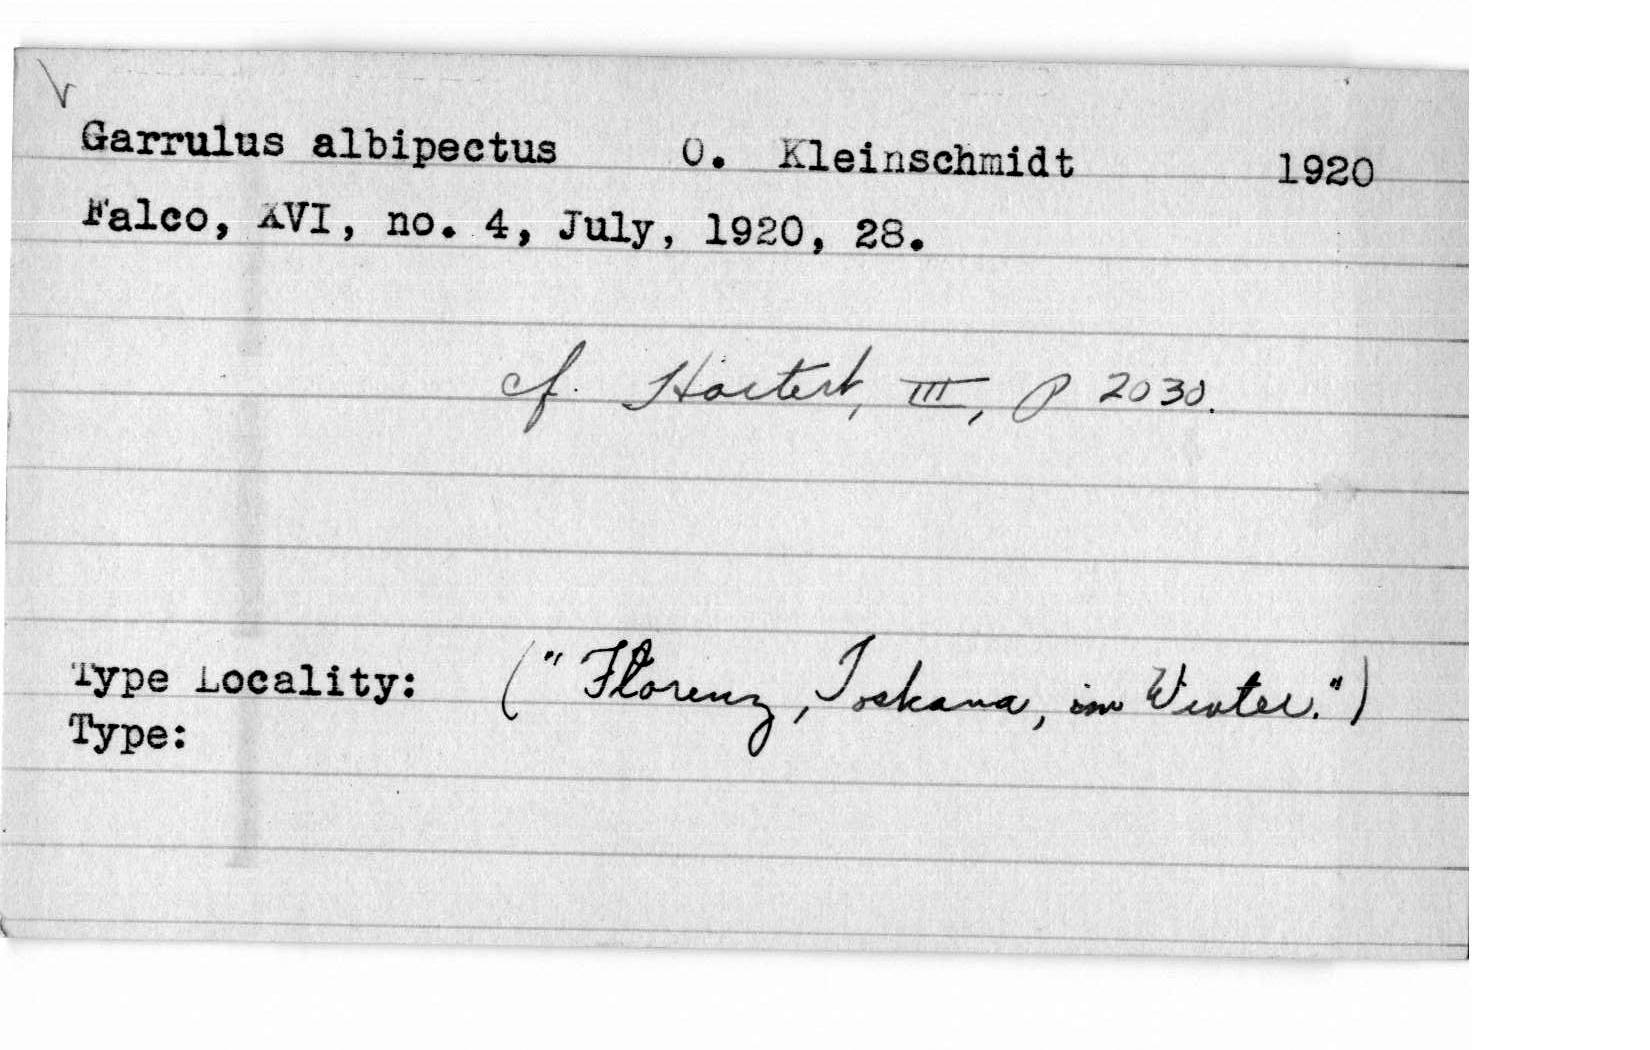 Garrulus albipectus O. Kleinschmidt 1920
Falco, XVI, no. 4, July, 1920, 28.
cf. Hartert, III, p 2030.
Type Locality: ("Florenz, Toskana, im Winter.")
Type: